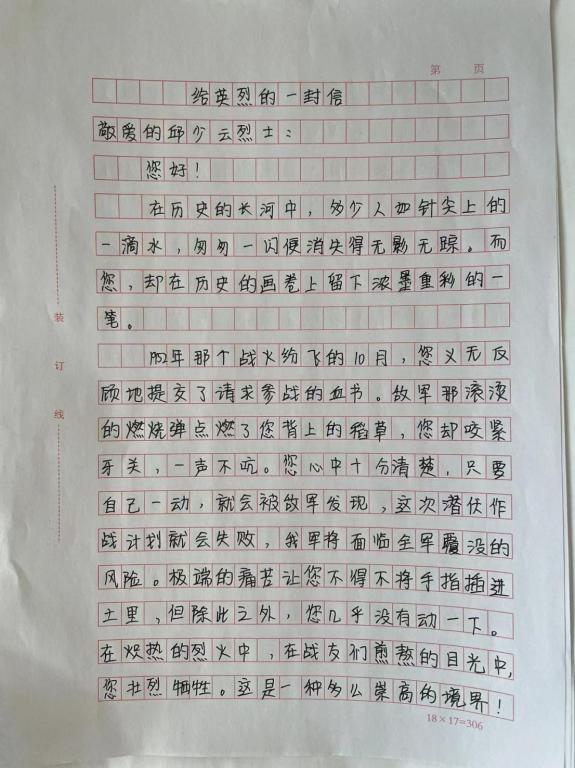 第 页
给英烈的一封信
敬爱的邱少云烈士：
您好！
在历史的长河中，多少人如针尖上的
一滴水，匆匆一闪便消失得无影无踪。而
您，却在历史的画卷上留下浓墨重彩的一
笔。
52年那个战火纷飞的10月，您义无反
顾地提交了请求参战的血书。敌军那滚烫
的燃烧弹点燃了您背上的稻草，您却咬紧
牙关，一声不吭。您心中十分清楚，只要
自己一动，就会被敌军发现，这次潜伏作
战计划就会失败，我军将面临全军覆没的
风险。极端的痛苦让您不得不将手指插进
土里，但除此之外，您几乎没有动一下。
在炽热的烈火中，在战友们煎熬的目光中，
您壮烈牺牲。这是一种多么崇高的境界！
18×17=306
装订线